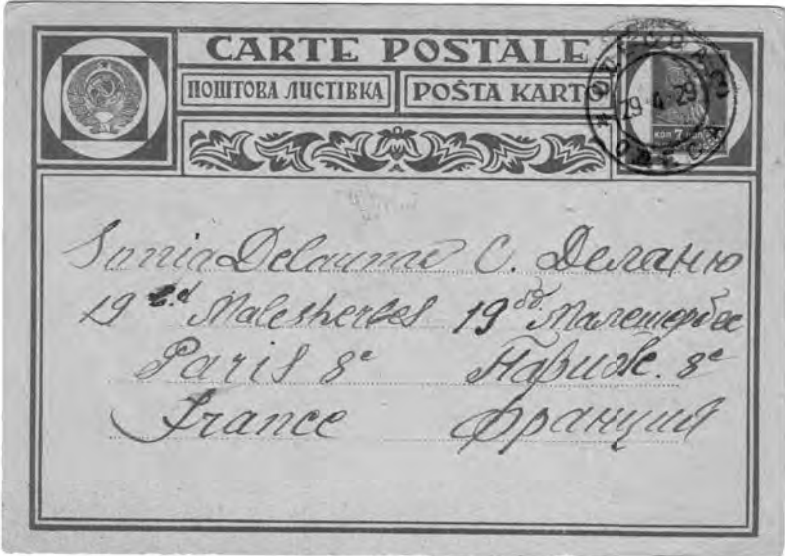 CARTE POSTALE
ПОШТОВА ЛИСТІВКА POŜTA KARTO
29 4 29
ОДЕСА
КОП 7 КОП
Sonia Delaunay С. Деланю
19 Bd Malesherbes 19 бд. Малешербес
Paris 8e Париж. 8e
France Франция